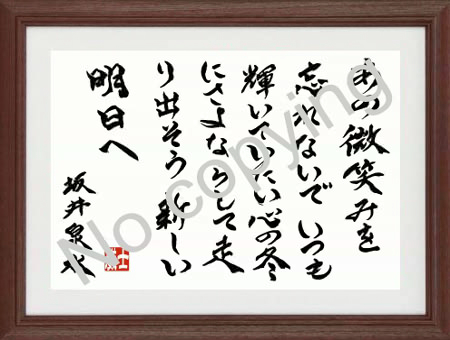 あの微笑みを
忘れないで いつも
輝いていたい 心の冬
にさよならして 走
り出そう 新しい
明日へ
坂井泉水
No copying